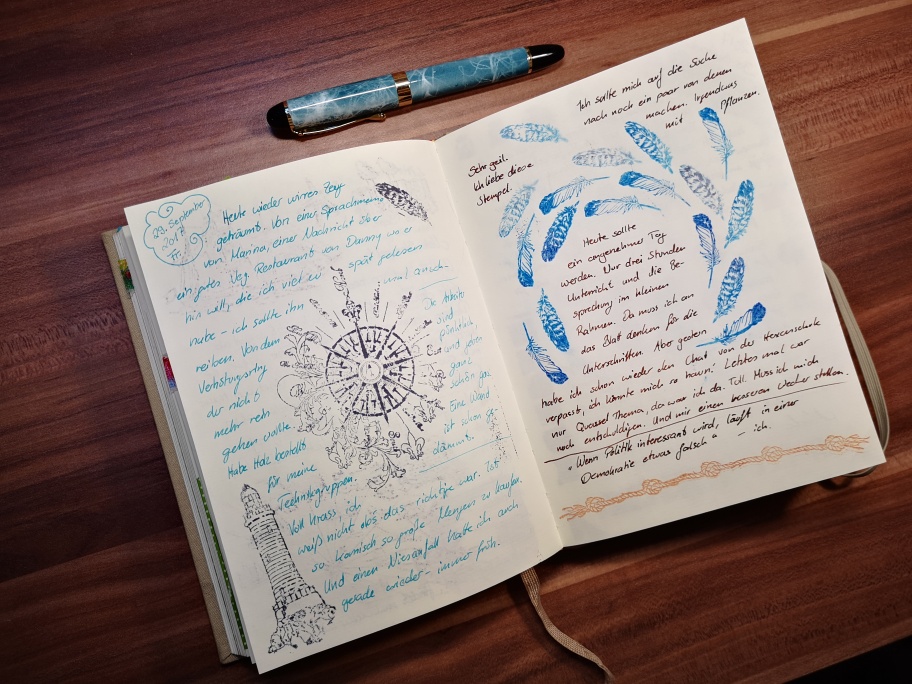 29. September
2017
Fr.
Heute wieder wirres Zeug
geträumt. Von einer Sprachmemo
von Hanna, einer Nachricht über
ein gutes Veg. Restaurant von Danny wo er
hin will, die ich viel zu spät gelesen
habe - ich sollte ihm mal auch.
reiben. Von dem
Verhütungsring
der nicht
mehr rein
gehen wollte.
Habe Holz bestellt
für meine
Technikgruppen.
Die Arbeiter
sind
pünktlich
und
ganz
schön
Eine Wand
ist schon ge-
dämmt.
Voll krass, ich
weiß nicht obs das richtige war. Ist
so komisch so große Mengen zu kaufen.
Und einen Niesanfall hatte ich auch
gerade wieder - immer früh.
Ich sollte mich auf die Suche
nach noch ein paar von denen
machen. Irgendwas
mit Pflanzen.
Sehr geil.
Ich liebe diese
Stempel.
Heute sollte
ein angenehmer Tag
werden. Nur drei Stunden
Unterricht und die Be-
sprechung im kleinen
Rahmen. Da muss ich an
das Blatt denken für die
Unterschriften. Aber gestern
habe ich schon wieder den Chat von der Hexenschule
verpasst, ich könnte mich so hauen! Letztes mal war
nur Quassel Thema, da war ich da. Toll. Muss ich mich
noch entschuldigen. Und mir einen besseren Wecker stellen.
"Wenn Politik interessant wird, läuft in einer
Demokratie etwas falsch" - ich.